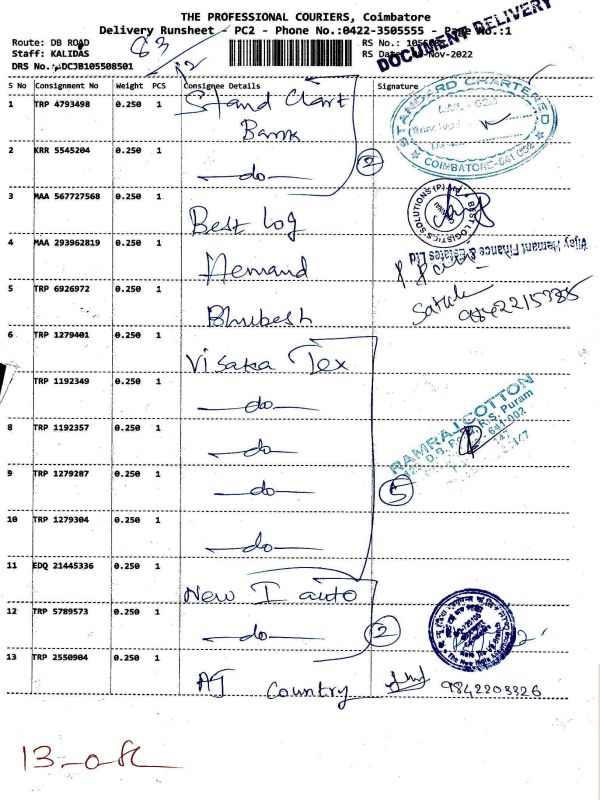 THE PROFESSIONAL COURIERS, Coimbatore
Delivery Runsheet - PC2 - Phone No.:0422-3505555 - Page No.:1
DOCUMENT DELIVERY
Route: DB ROAD
83
Staff: KALIDAS
RS No.:
RS Date
Nov-2022
DRS No.: DCJB105508501
S No Consignment No Weight PCS Consignee Details Signature
1 TRP 4793498 0.250 1 Stand Chart Bank
STANDARD CHARTERED
COIMBATORE-641 002
2 KRR 5545204 0.250 1 -do- 2
3 MAA 567727568 0.250 1 Best Log
BEST LOGISTICS SOLUTIONS (P) Ltd
4 MAA 293962819 0.250 1 Hemand
Vijay Hemant Finance & Estates Ltd
5 TRP 6926972 0.250 1 Bhubesh
9842215385
6 TRP 1279401 0.250 1 Visaka Tex
TRP 1192349 0.250 1 -do-
8 TRP 1192357 0.250 1 -do-
RAMRAJ COTTON
D.B. Road, R.S. Puram
641 002
9 TRP 1279287 0.250 1 -do- 5
10 TRP 1279304 0.250 1 -do-
11 EDQ 21445336 0.250 1 New I auto
12 TRP 5789573 0.250 1 -do- 2
13 TRP 2550904 0.250 1 AJ Country
9842203326
13-ofc